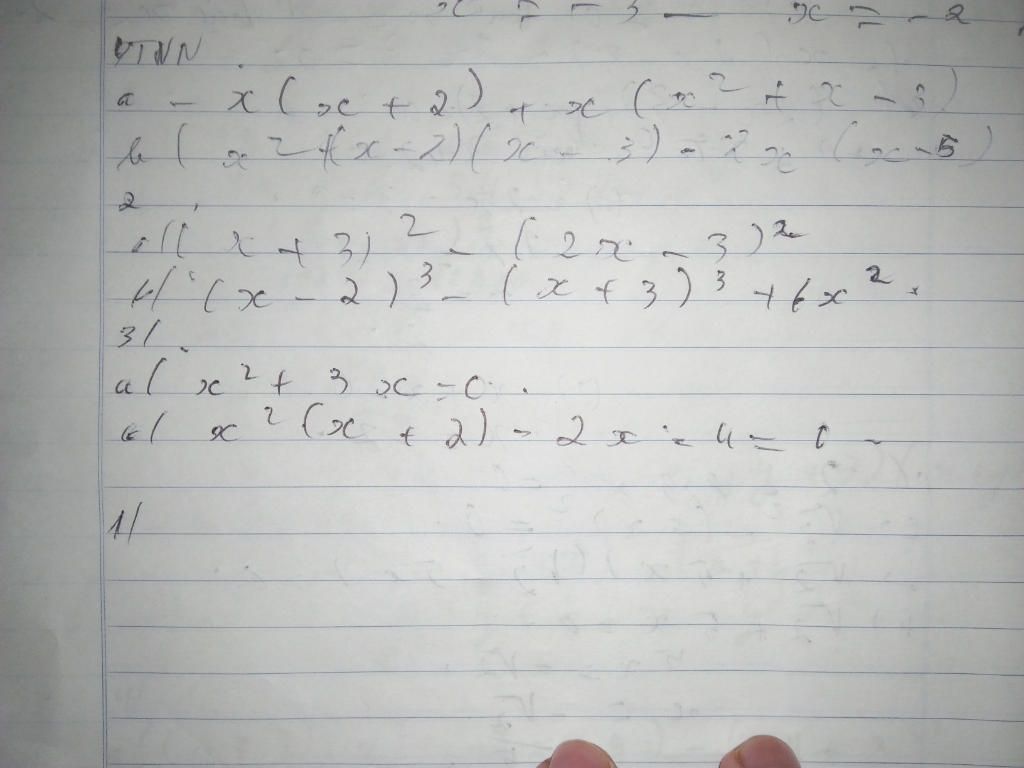 x = -3 — x = -2
VTNN.
a - x(x + 2) + x(x² + x - 3)
b( x² +(x-2)(x - 3) - 2x (x-5)
2.
a/( x + 3)² - (2x - 3)²
b/ (x - 2)³ - (x + 3)³ + 6x².
3/.
a( x² + 3x = 0.
b/ x² (x + 2) - 2x - 4 = 0 -
1/